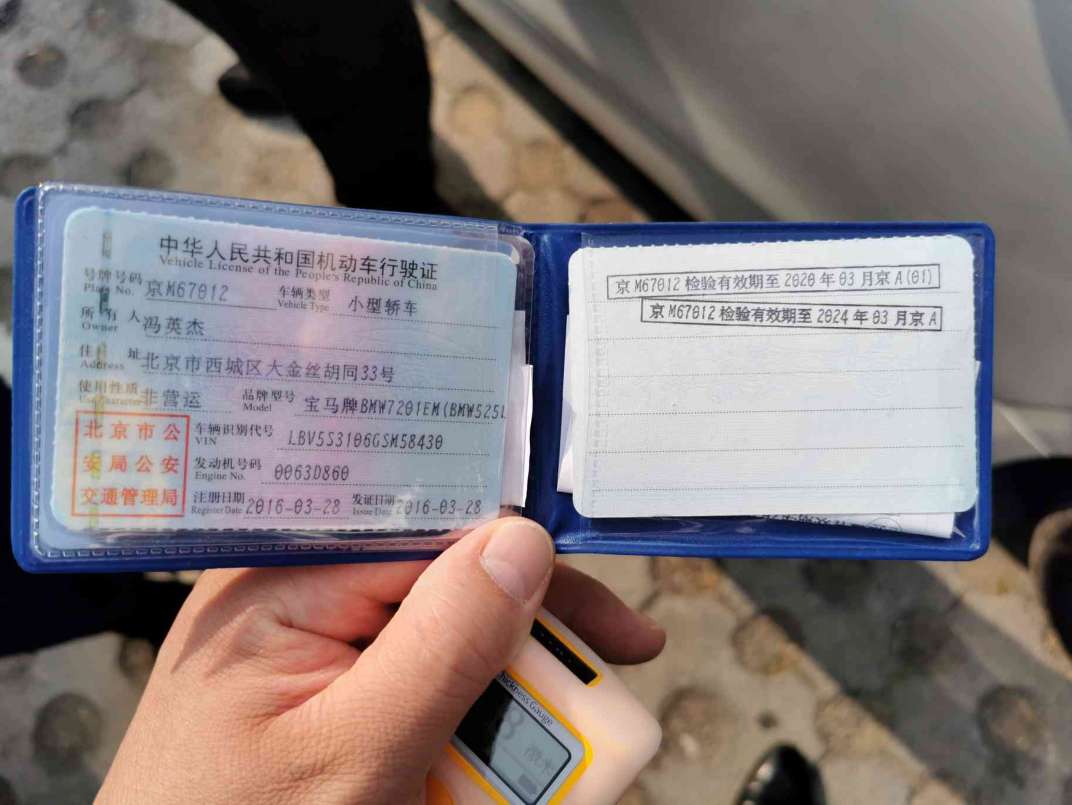 中华人民共和国机动车行驶证
Vehicle License of the People's Republic of China
号牌号码 京M67012 车辆类型 小型轿车
Plate No. Vehicle Type
所有人 冯英杰
Owner
住址 北京市西城区大金丝胡同33号
Address
使用性质 非营运 品牌型号 宝马牌BMW7201EM(BMW525L
Use Character Model
北京市公
安局公安
交通管理局
车辆识别代号 LBV5S3106GSM58430
VIN
发动机号码 0063D860
Engine No.
注册日期 2016-03-28 发证日期 2016-03-28
Register Date Issue Date
京M67012检验有效期至2020年03月京A(01)
京M67012检验有效期至2024年03月京A
Thickness Gauge